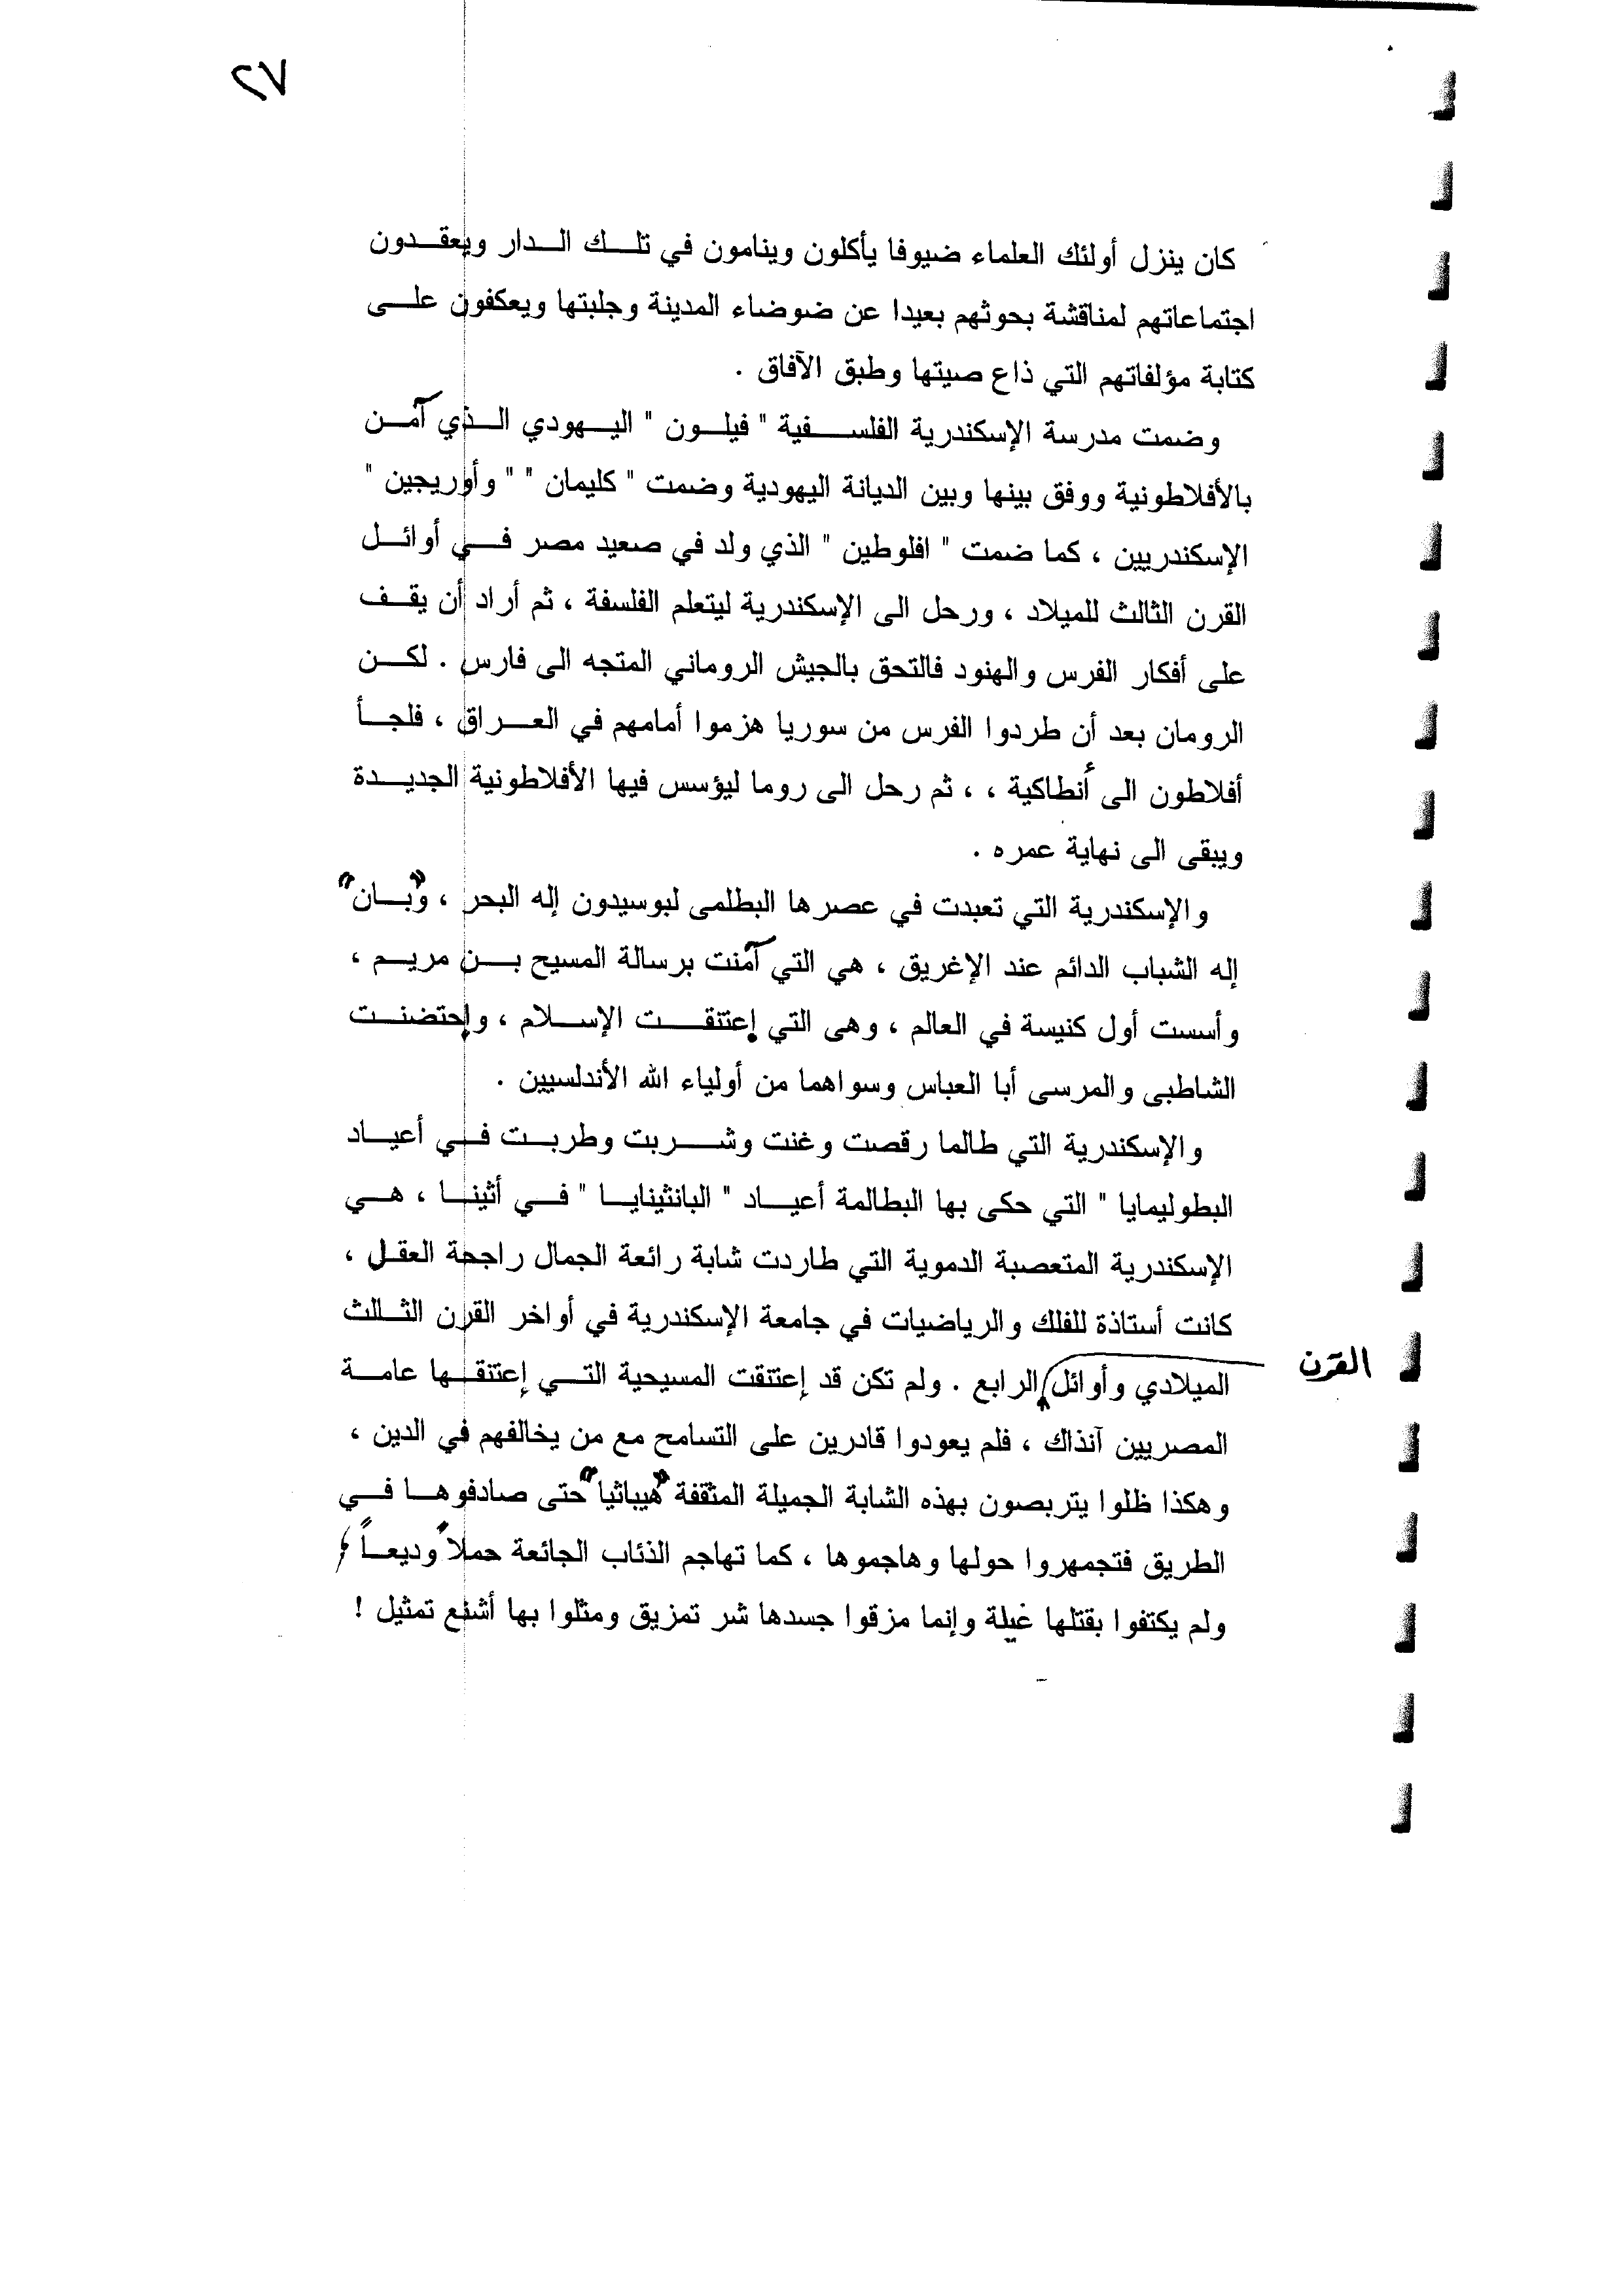 ٢٧
كان ينزل أولئك العلماء ضيوفا يأكلون وينامون في تلك الدار ويعقدون
اجتماعاتهم لمناقشة بحوثهم بعيدا عن ضوضاء المدينة وجلبتها ويعكفون على
كتابة مؤلفاتهم التي ذاع صيتها وطبق الآفاق .
وضمت مدرسة الإسكندرية الفلسفية " فيلون " اليهودي الذي آمن
بالأفلاطونية ووفق بينها وبين الديانة اليهودية وضمت " كليمان " " وأوريجين "
الإسكندريين ، كما ضمت " افلوطين " الذي ولد في صعيد مصر في أوائل
القرن الثالث للميلاد ، ورحل الى الإسكندرية ليتعلم الفلسفة ، ثم أراد أن يقف
على أفكار الفرس والهنود فالتحق بالجيش الروماني المتجه الى فارس . لكن
الرومان بعد أن طردوا الفرس من سوريا هزموا أمامهم في العراق ، فلجأ
أفلاطون الى أنطاكية ، ، ثم رحل الى روما ليؤسس فيها الأفلاطونية الجديدة
ويبقى الى نهاية عمره .
والإسكندرية التي تعبدت في عصرها البطلمى لبوسيدون إله البحر ، و"بان"
إله الشباب الدائم عند الإغريق ، هي التي آمنت برسالة المسيح بن مريم ،
وأسست أول كنيسة في العالم ، وهى التي إعتنقت الإسلام ، وإحتضنت
الشاطبى والمرسى أبا العباس وسواهما من أولياء الله الأندلسيين .
والإسكندرية التي طالما رقصت وغنت وشربت وطربت في أعياد
البطوليمايا " التي حكى بها البطالمة أعياد " البانثينايا " في أثينا ، هي
الإسكندرية المتعصبة الدموية التي طاردت شابة رائعة الجمال راجحة العقل ،
كانت أستاذة للفلك والرياضيات في جامعة الإسكندرية في أواخر القرن الثالث
الميلادي وأوائل القرن الرابع . ولم تكن قد إعتنقت المسيحية التي إعتنقها عامة
المصريين آنذاك ، فلم يعودوا قادرين على التسامح مع من يخالفهم في الدين ،
وهكذا ظلوا يتربصون بهذه الشابة الجميلة المثقفة "هيباثيا" حتى صادفوها في
الطريق فتجمهروا حولها وهاجموها ، كما تهاجم الذئاب الجائعة حملاً وديعاً ،
ولم يكتفوا بقتلها غيلة وإنما مزقوا جسدها شر تمزيق ومثلوا بها أشنع تمثيل !